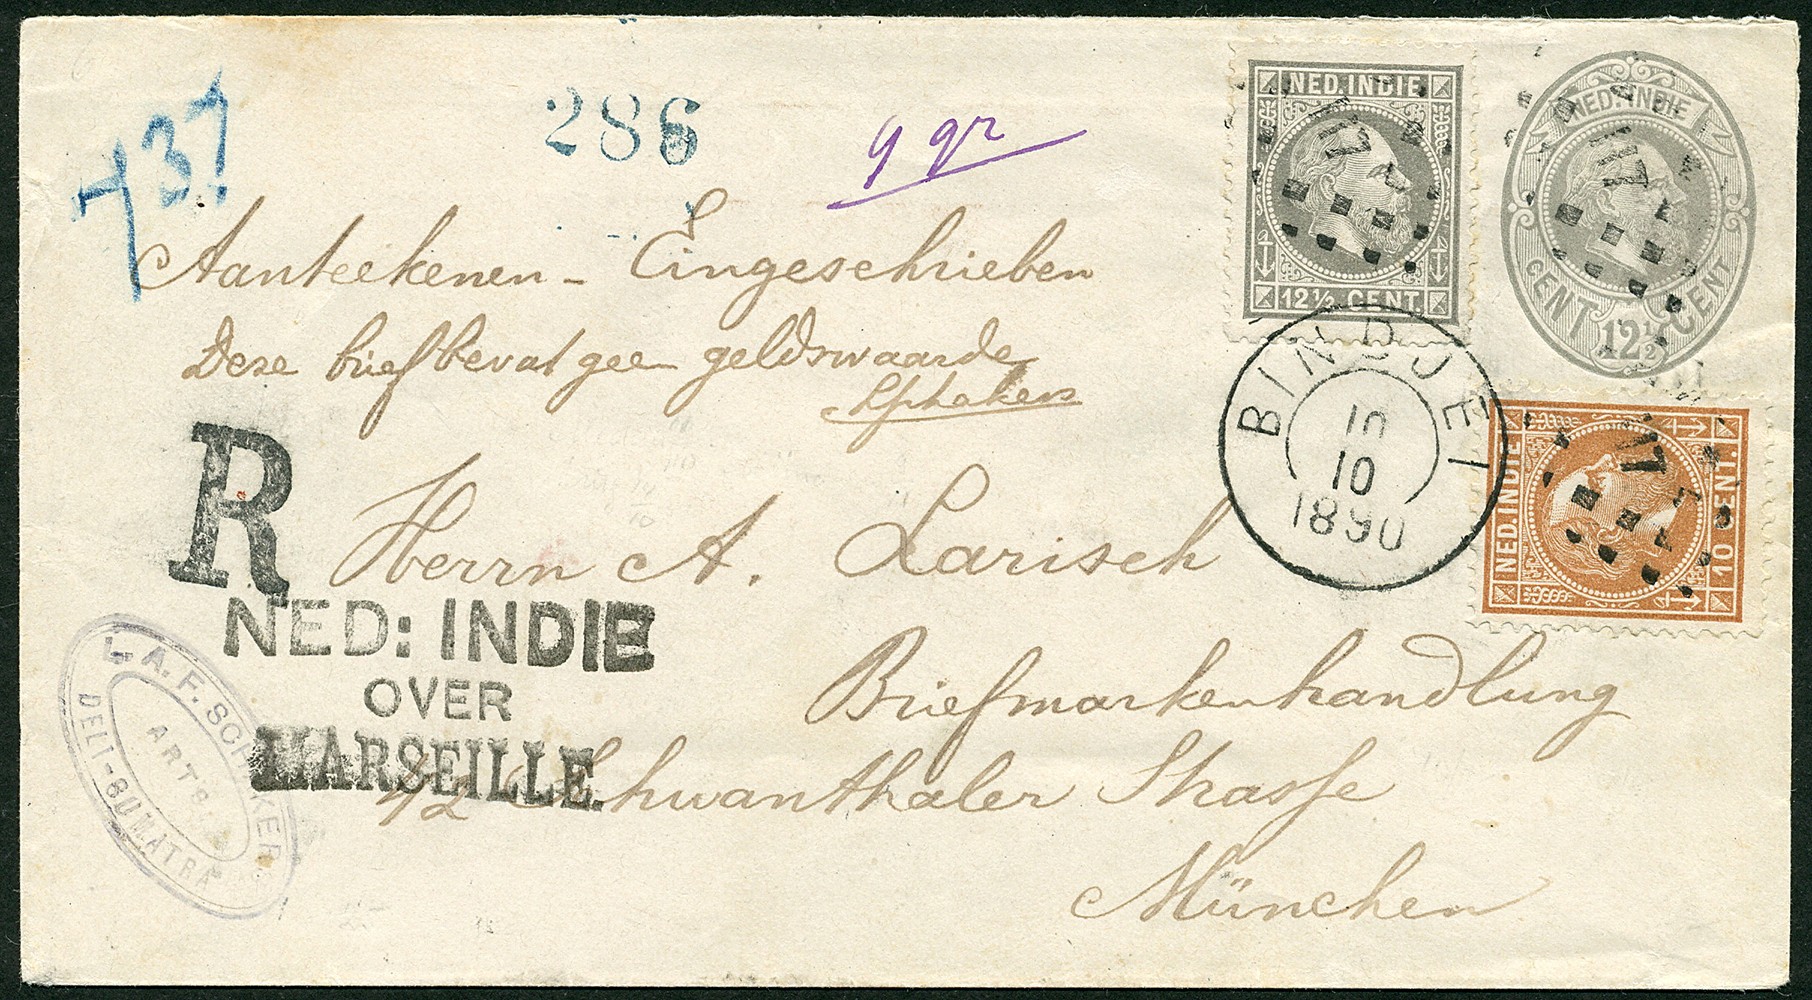 737
286
9 gr
NED. INDIE
12½ CENT.
NED. INDIE
CENT 12½ CENT
Aanteekenen - Eingeschrieben
Deze brief bevat geen geldswaarde
BINDJEI
10
10
1890
NED. INDIE
10 CENT.
R
Herrn A. Larisch
NED: INDIE
OVER
MARSEILLE.
Briefmarkenhandlung
42 Schwanthaler Strasse
München
L. A. F. SCHAKER
ARTS
DELI-SUMATRA